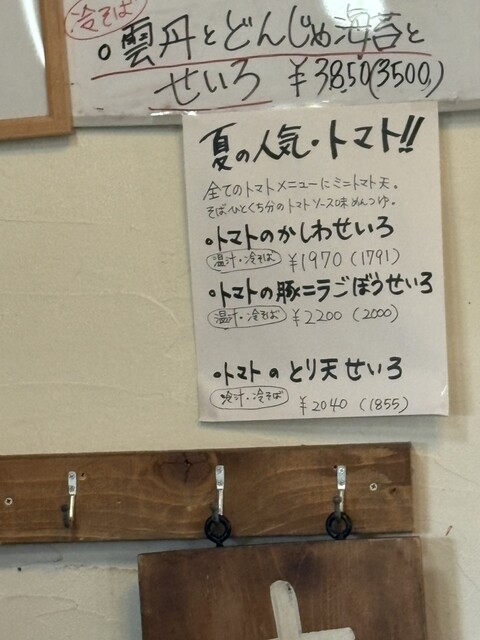 冷そば
・雲丹とどんじめ海苔と
せいろ ¥3850(3500)
夏の人気・トマト!!
全てのトマトメニューにミニトマト天。
そばひとくち分のトマトソース味めんつゆ。
・トマトのかしわせいろ
温汁・冷そば ¥1970(1791)
・トマトの豚ニラごぼうせいろ
温汁・冷そば ¥2200(2000)
・トマトのとり天せいろ
冷汁・冷そば ¥2040(1855)